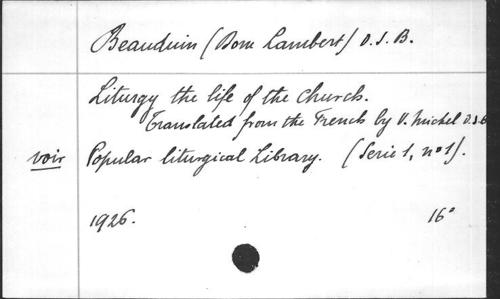 Beauduin (Dom Lambert) O.S.B.
Liturgy the life of the Church.
Translated from the French by V. Michel O.S.B
voir Popular liturgical Library. (Serie 1, n° 1).
1926. 16°